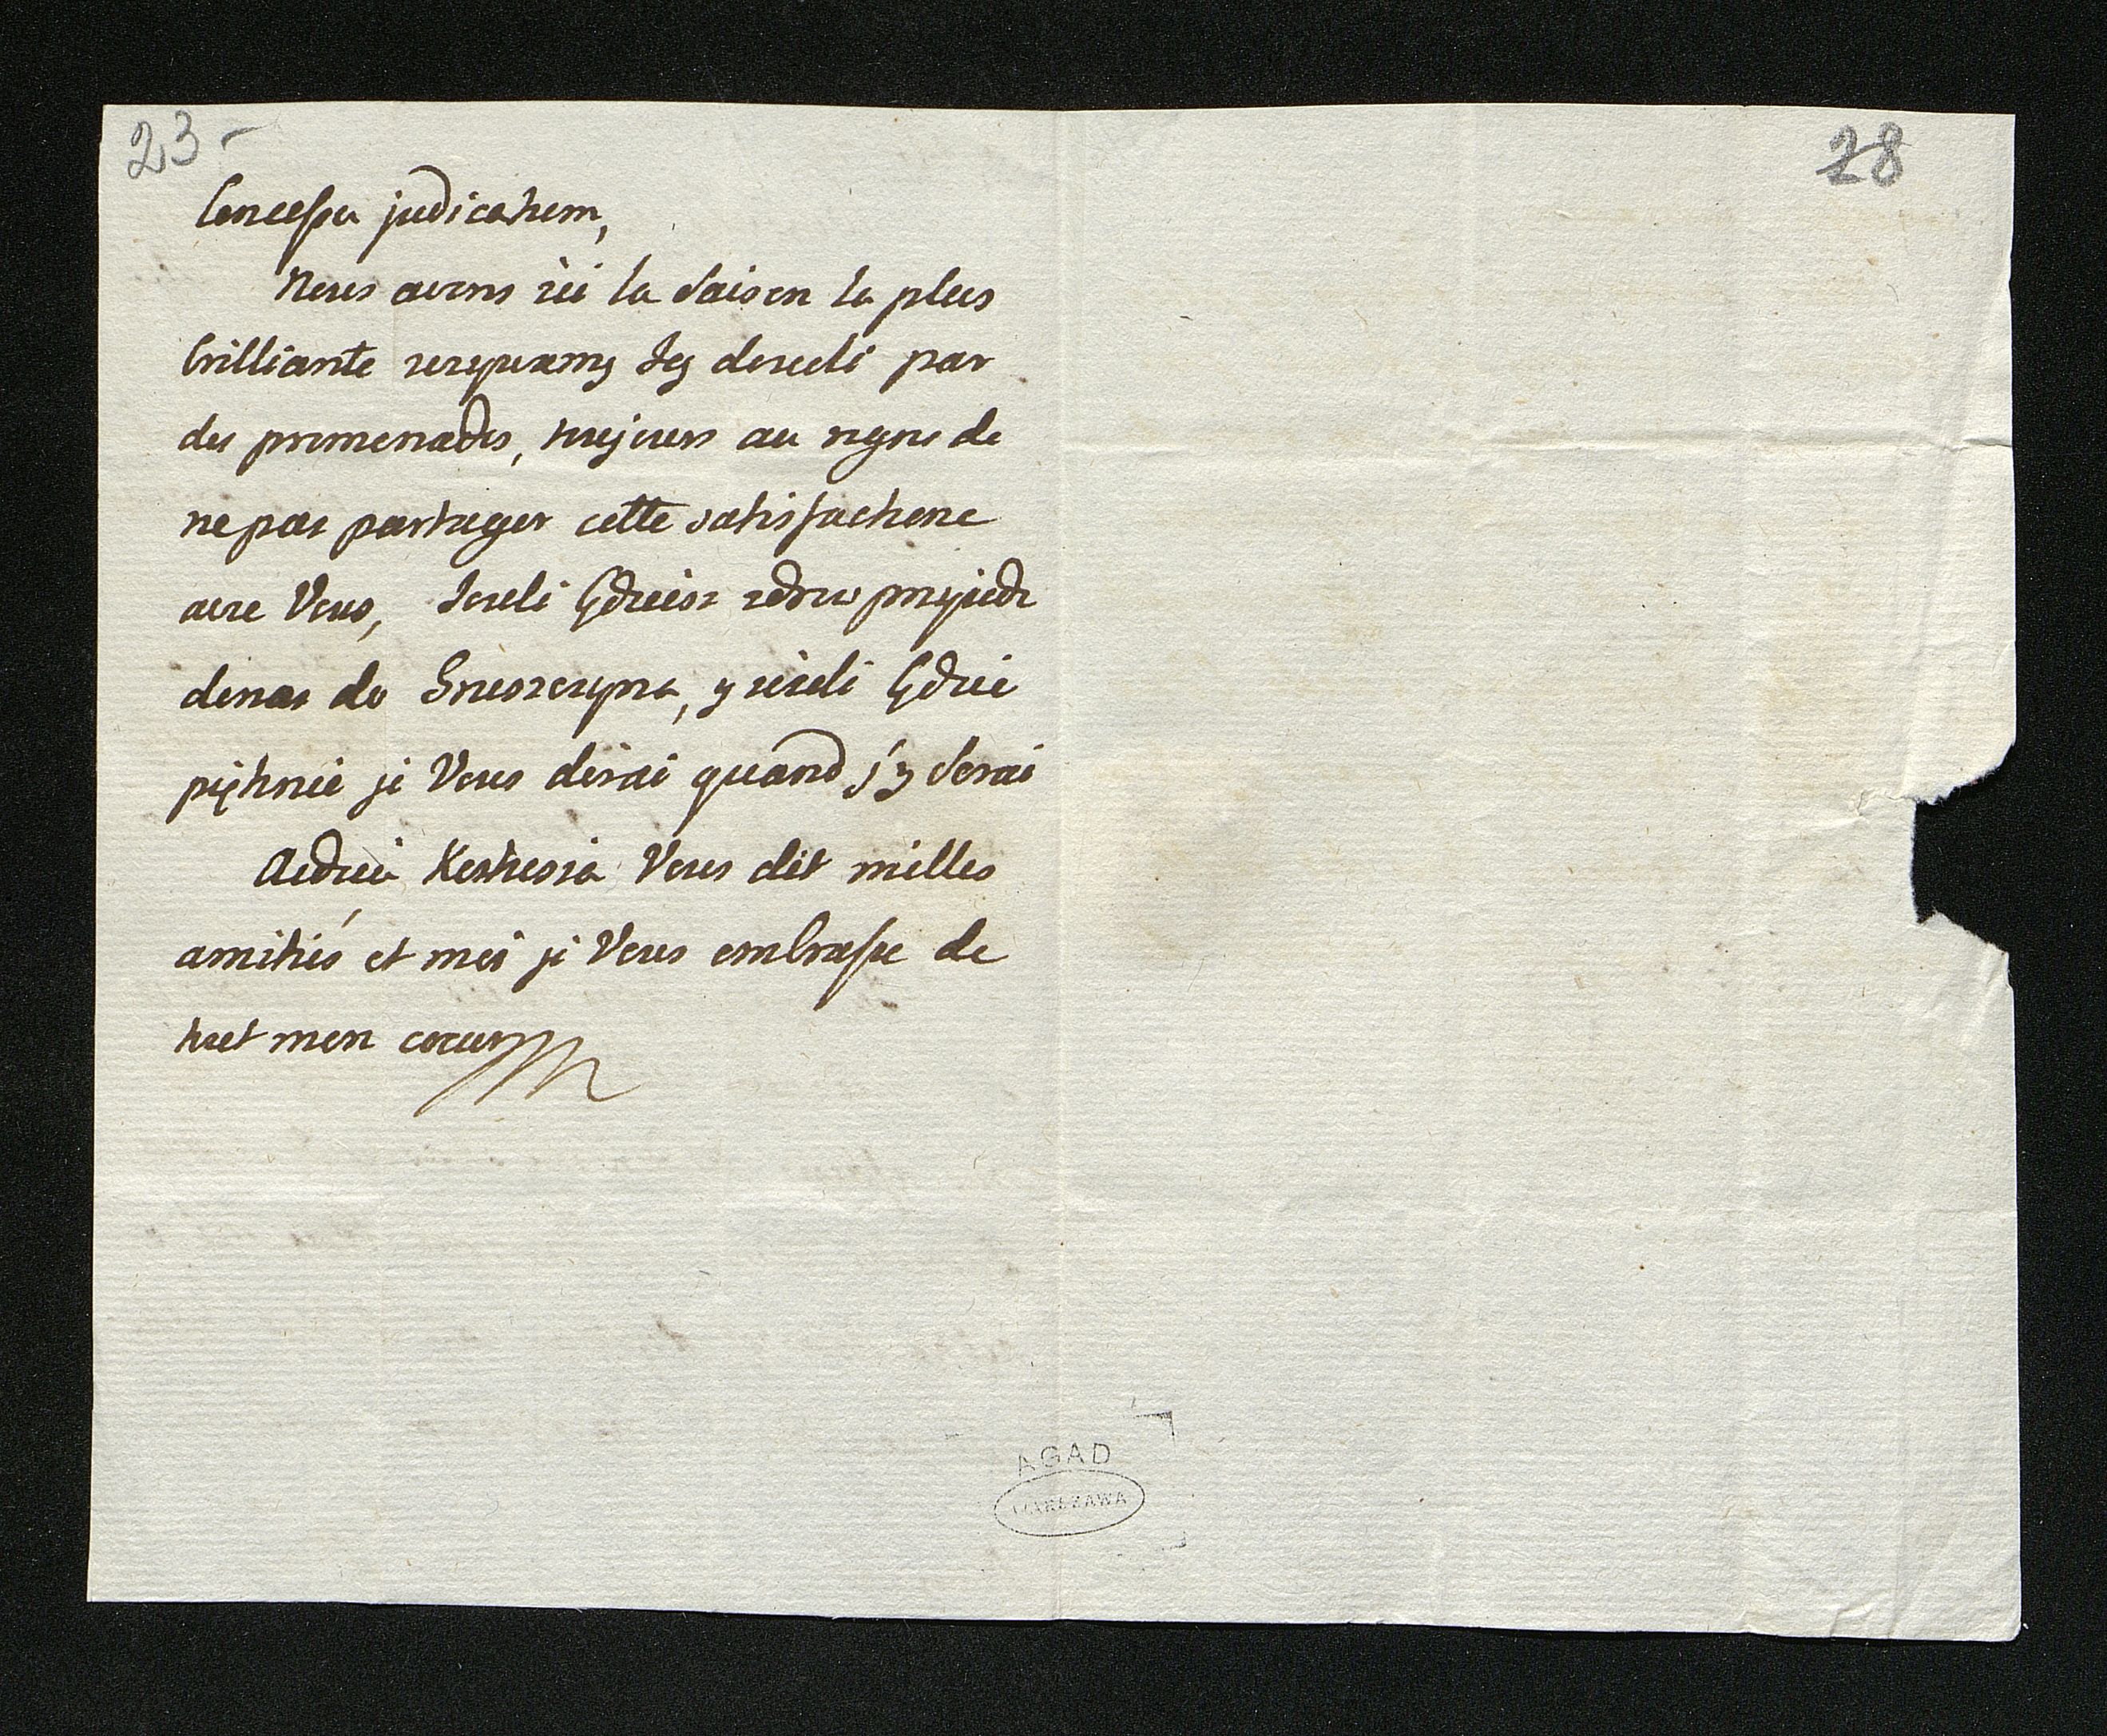 23-
28
Concessa judicatum,
Nous avons ici la Saison la plus
brilliante rozrywamy się docseli par
des promenades, toujours au regre de
ne pas partager cette satisfactione
avec Vous, Jezeli Gdzieis zdrow przyiedz
donas do
pięknie je Vous dirai quand j'y Serai
Vous dit milles
amitiés et moi je Vous embrasse de
tout mon coeur
AGAD
WARSZAWA